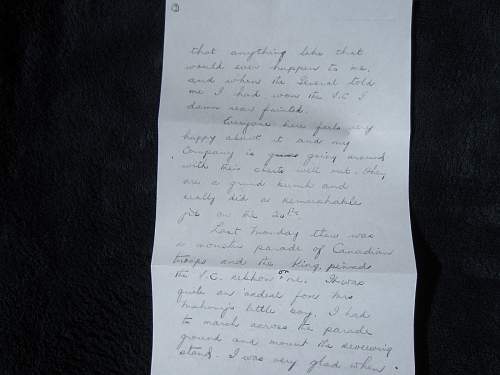 3
that anything like that
would ever happen to me,
and when the General told
me I had won the V.C I
damn near fainted.
Everyone here feels very
happy about it and my
Company is going around
with their chests well out. They
are a grand bunch and
really did a remarkable
job on the 24th.
Last Monday there was
a monster parade of Canadian
troops and the King pinned
the V.C. ribbon on me. It was
quite an ordeal for Mrs
Mahony's little boy. I had
to march across the parade
ground and mount the reviewing
stand. I was very glad when